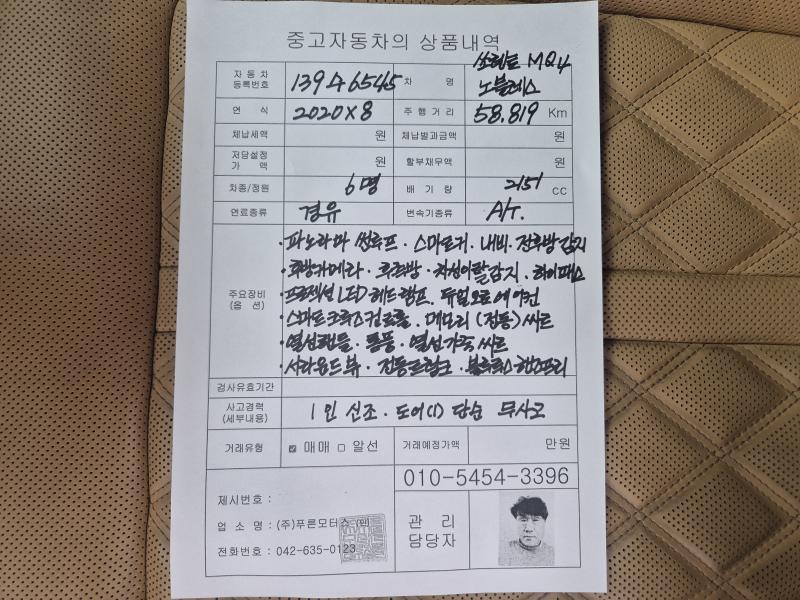 중고자동차의 상품내역
자동차 등록번호 139수6545 차 명 쏘렌토 MQ4 노블레스
연 식 2020 X 8 주행거리 58.819 Km
체납세액 원 체납벌과금액 원
저당설정 가 액 원 할부채무액 원
차종/정원 6명 배 기 량 2151 CC
연료종류 경유 변속기종류 A/T.
주요장비 (옵 션)
·파노라마 썬루프 · 스마트키 · 내비 · 전후방감지
·후방카메라 · 크루방 · 차선이탈감지 · 하이패스
·프로젝션 LED헤드램프. 듀얼오토에어컨
·스마트크루즈컨트롤. 메모리(전동)씨트
·열선핸들 · 통풍 · 열선가죽씨트
·서라운드뷰 · 전동트렁크 · 블루투스핸즈프리
검사유효기간
사고경력 (세부내용) 1인 신조 · 도어(1) 단순 무사고
거래유형 ☑ 매매 □ 알선 거래예정가액 만원
010-5454-3396
제시번호 :
업 소 명 : (주)푸른모터스
전화번호 : 042-635-0123
관 리
담당자